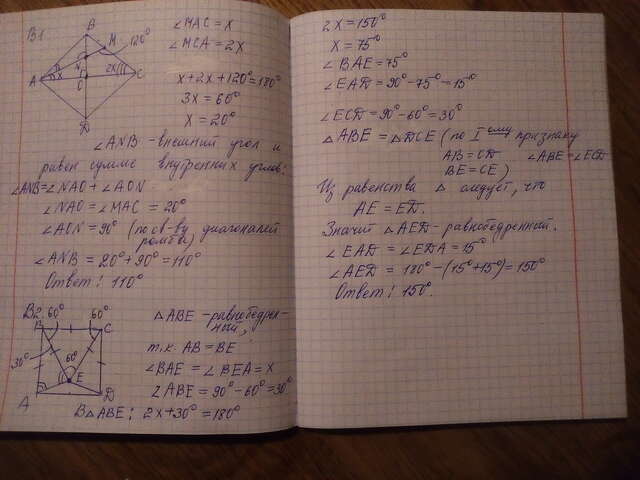 В1
B
M
120°
N
A
x
2x
C
O
D
∠MAC = x
∠MCA = 2x
x + 2x + 120° = 180°
3x = 60°
x = 20°
∠ANB - внешний угол и
равен сумме внутренних углов:
∠ANB = ∠NAO + ∠AON =
∠NAO = ∠MAC = 20°
∠AON = 90° (по св-ву диагоналей
ромба)
∠ANB = 20° + 90° = 110°
Ответ: 110°
В2.
60° 60°
B C
30°
60°
E
A D
△ABE - равнобедрен-
ный,
т.к. AB = BE
∠BAE = ∠BEA = x
∠ABE = 90° - 60° = 30°
В △ABE: 2x + 30° = 180°
2x = 150°
x = 75°
∠BAE = 75°
∠EAD = 90° - 75° = 15°
∠ECD = 90° - 60° = 30°
△ABE = △DCE (по I ому признаку
AB = CD ∠ABE = ∠ECD
BE = CE)
Из равенства △ следует, что
AE = ED.
Значит △AED - равнобедренный.
∠EAD = ∠EDA = 15°
∠AED = 180° - (15° + 15°) = 150°
Ответ: 150°.